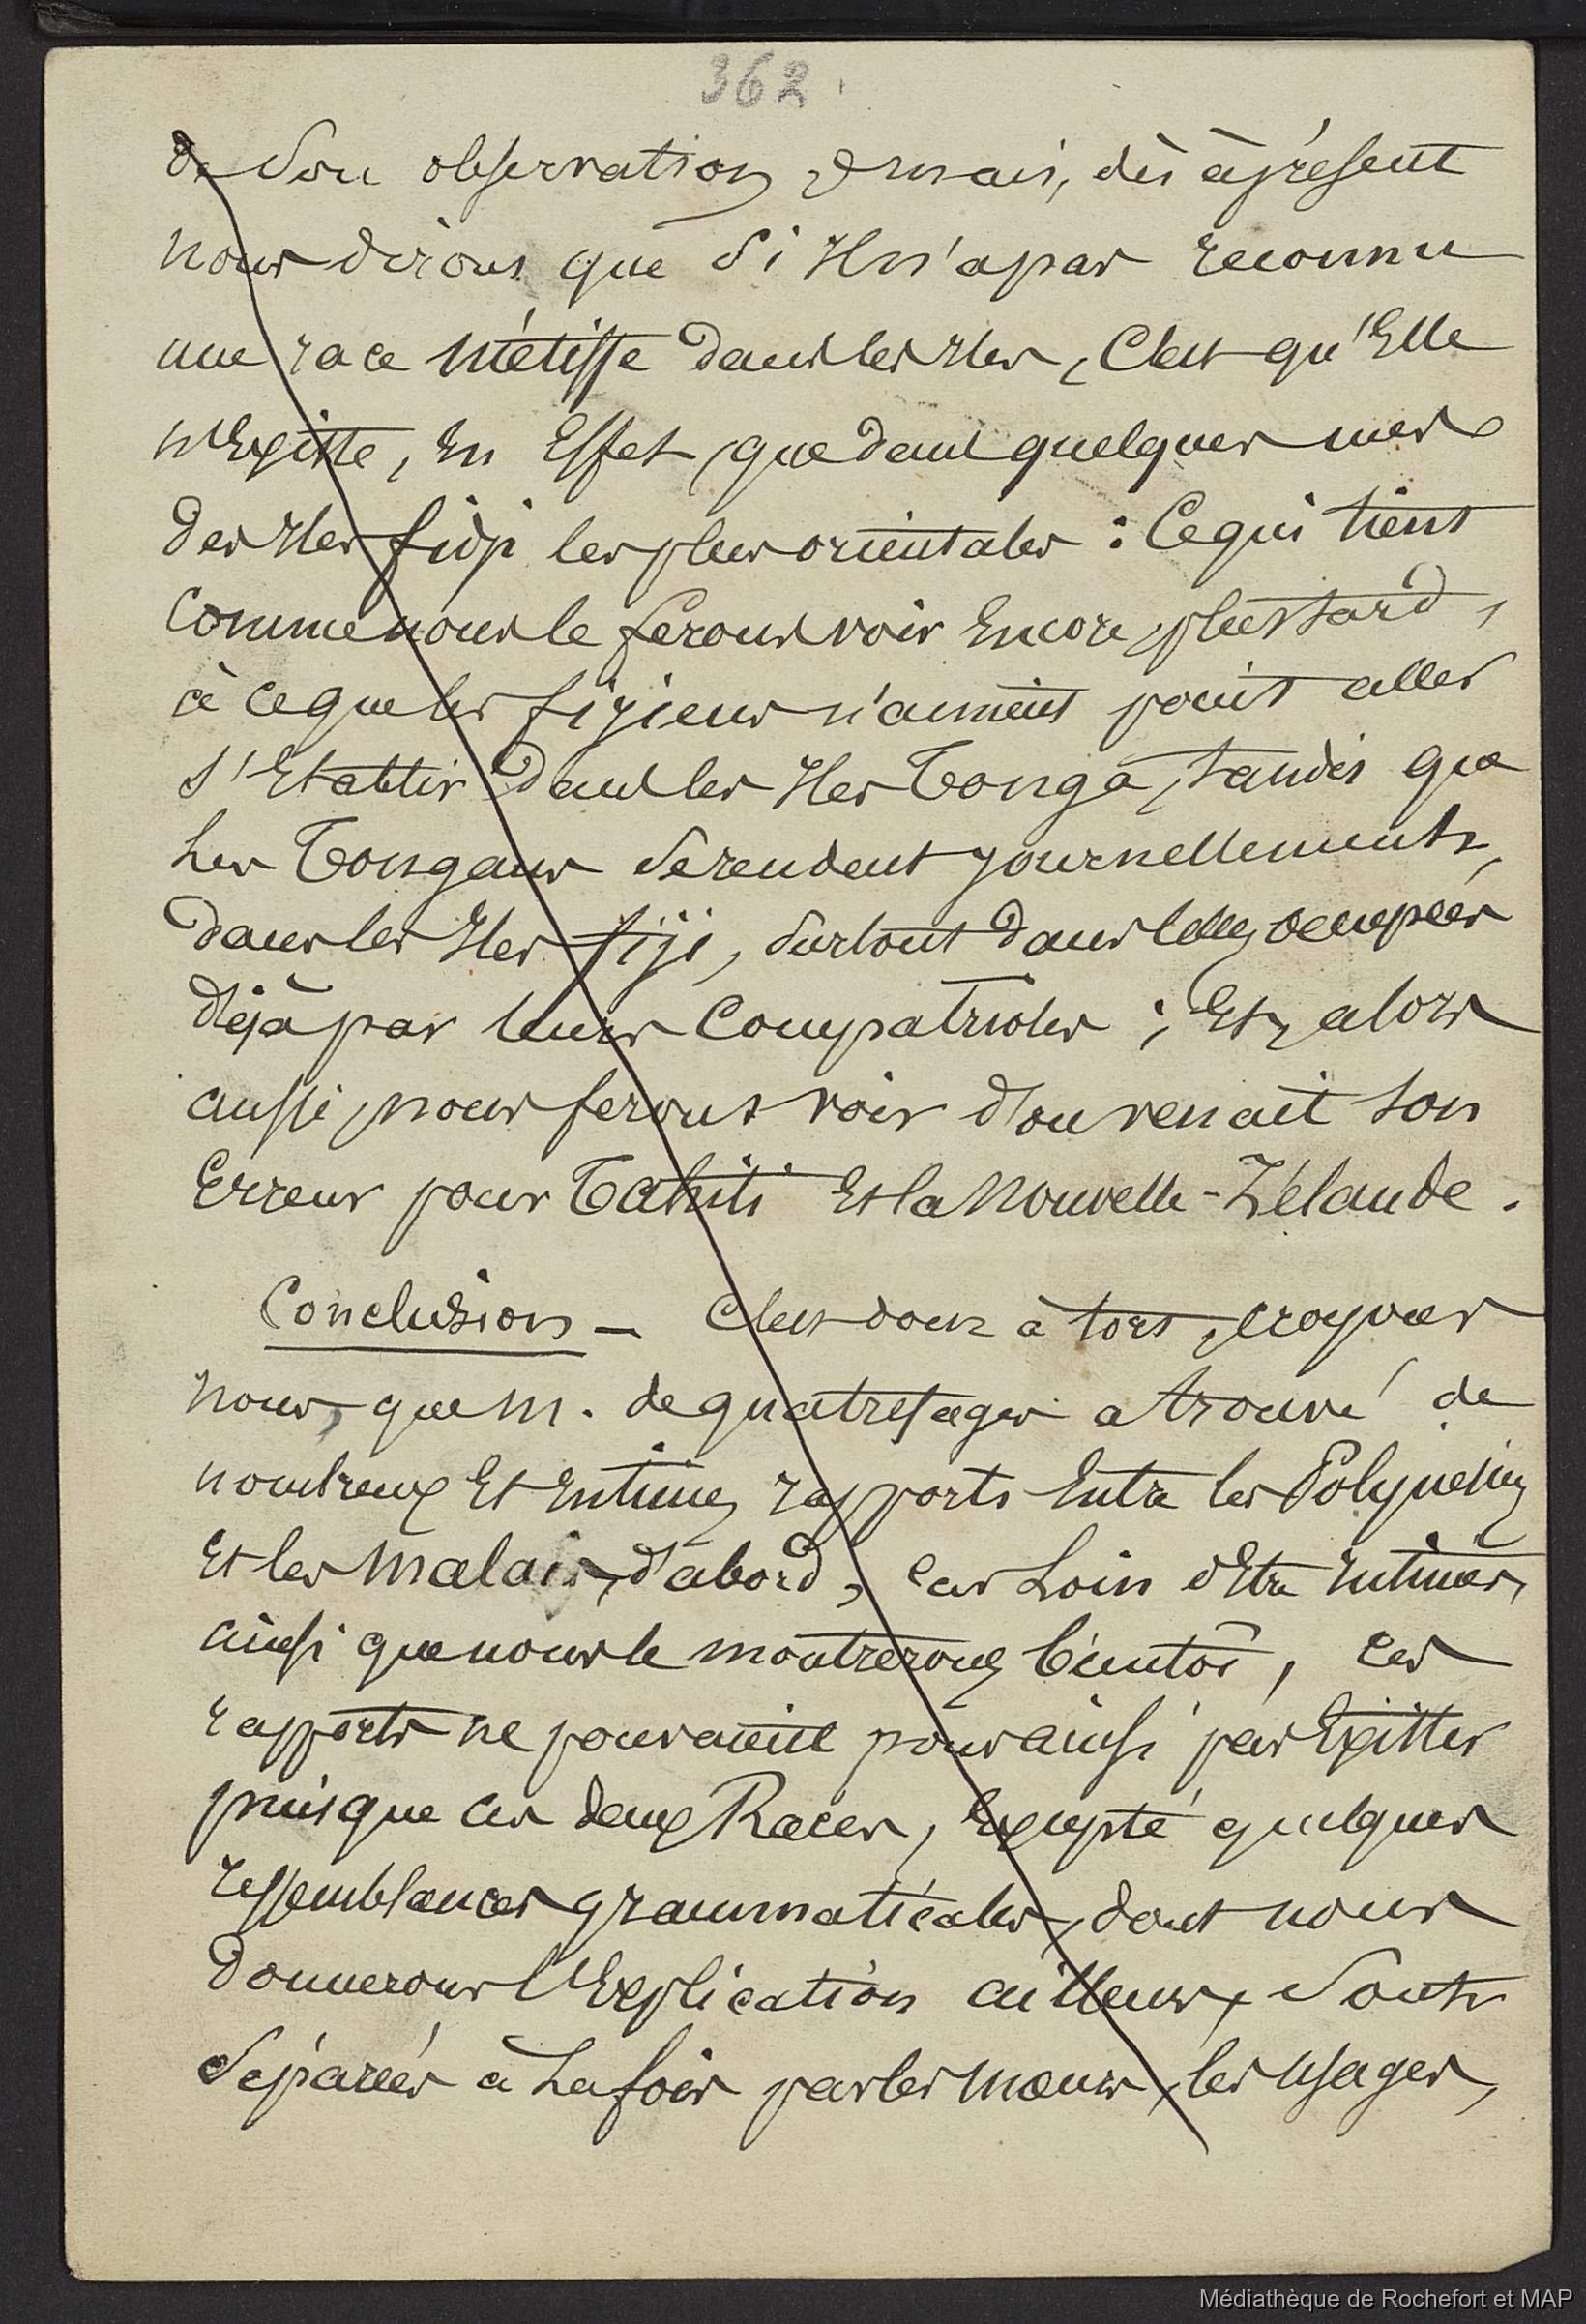 362.
de son observation ; mais, dès àprésent
nous dirons que si Il n'a pas reconnu
une race métisse dans les Iles, C'est qu'Elle
n'Existe, En Effet, que dans quelques unes
des Iles fidji les plus orientales : Ce qui tient
Comme nous le ferons voir Encore, plus tard,
à ce que les fijiens n'aiment point aller
s'Etablir dans les Iles Tonga, tandis que
Les Tongans se rendent journellement,
dans les Iles fiji, surtout dans celles occupées
déjà par leurs Compatriotes ; Et, alors
aussi, nous ferons voir d'ou venait son
Erreur pour Tahiti Et la Nouvelle-Zélande.
Conclusion – C'est donc à tort, croyons
nous, que M. de quatrefages a trouvé de
nombreux Et Intimes rapports Entre les Polynésiens
Et les Malais, d'abord, car Loin d'Etre Intimes,
ainsi que nous le montrerons bientôt, ces
rapports ne pouvaient pour ainsi pas Exister
puisque ces deux Races, Excepté quelques
ressemblances grammaticales, dont nous
donnerons l'Explication ailleurs, Sont
séparées à La fois par les mœurs, les usages,
Médiathèque de Rochefort et MAP